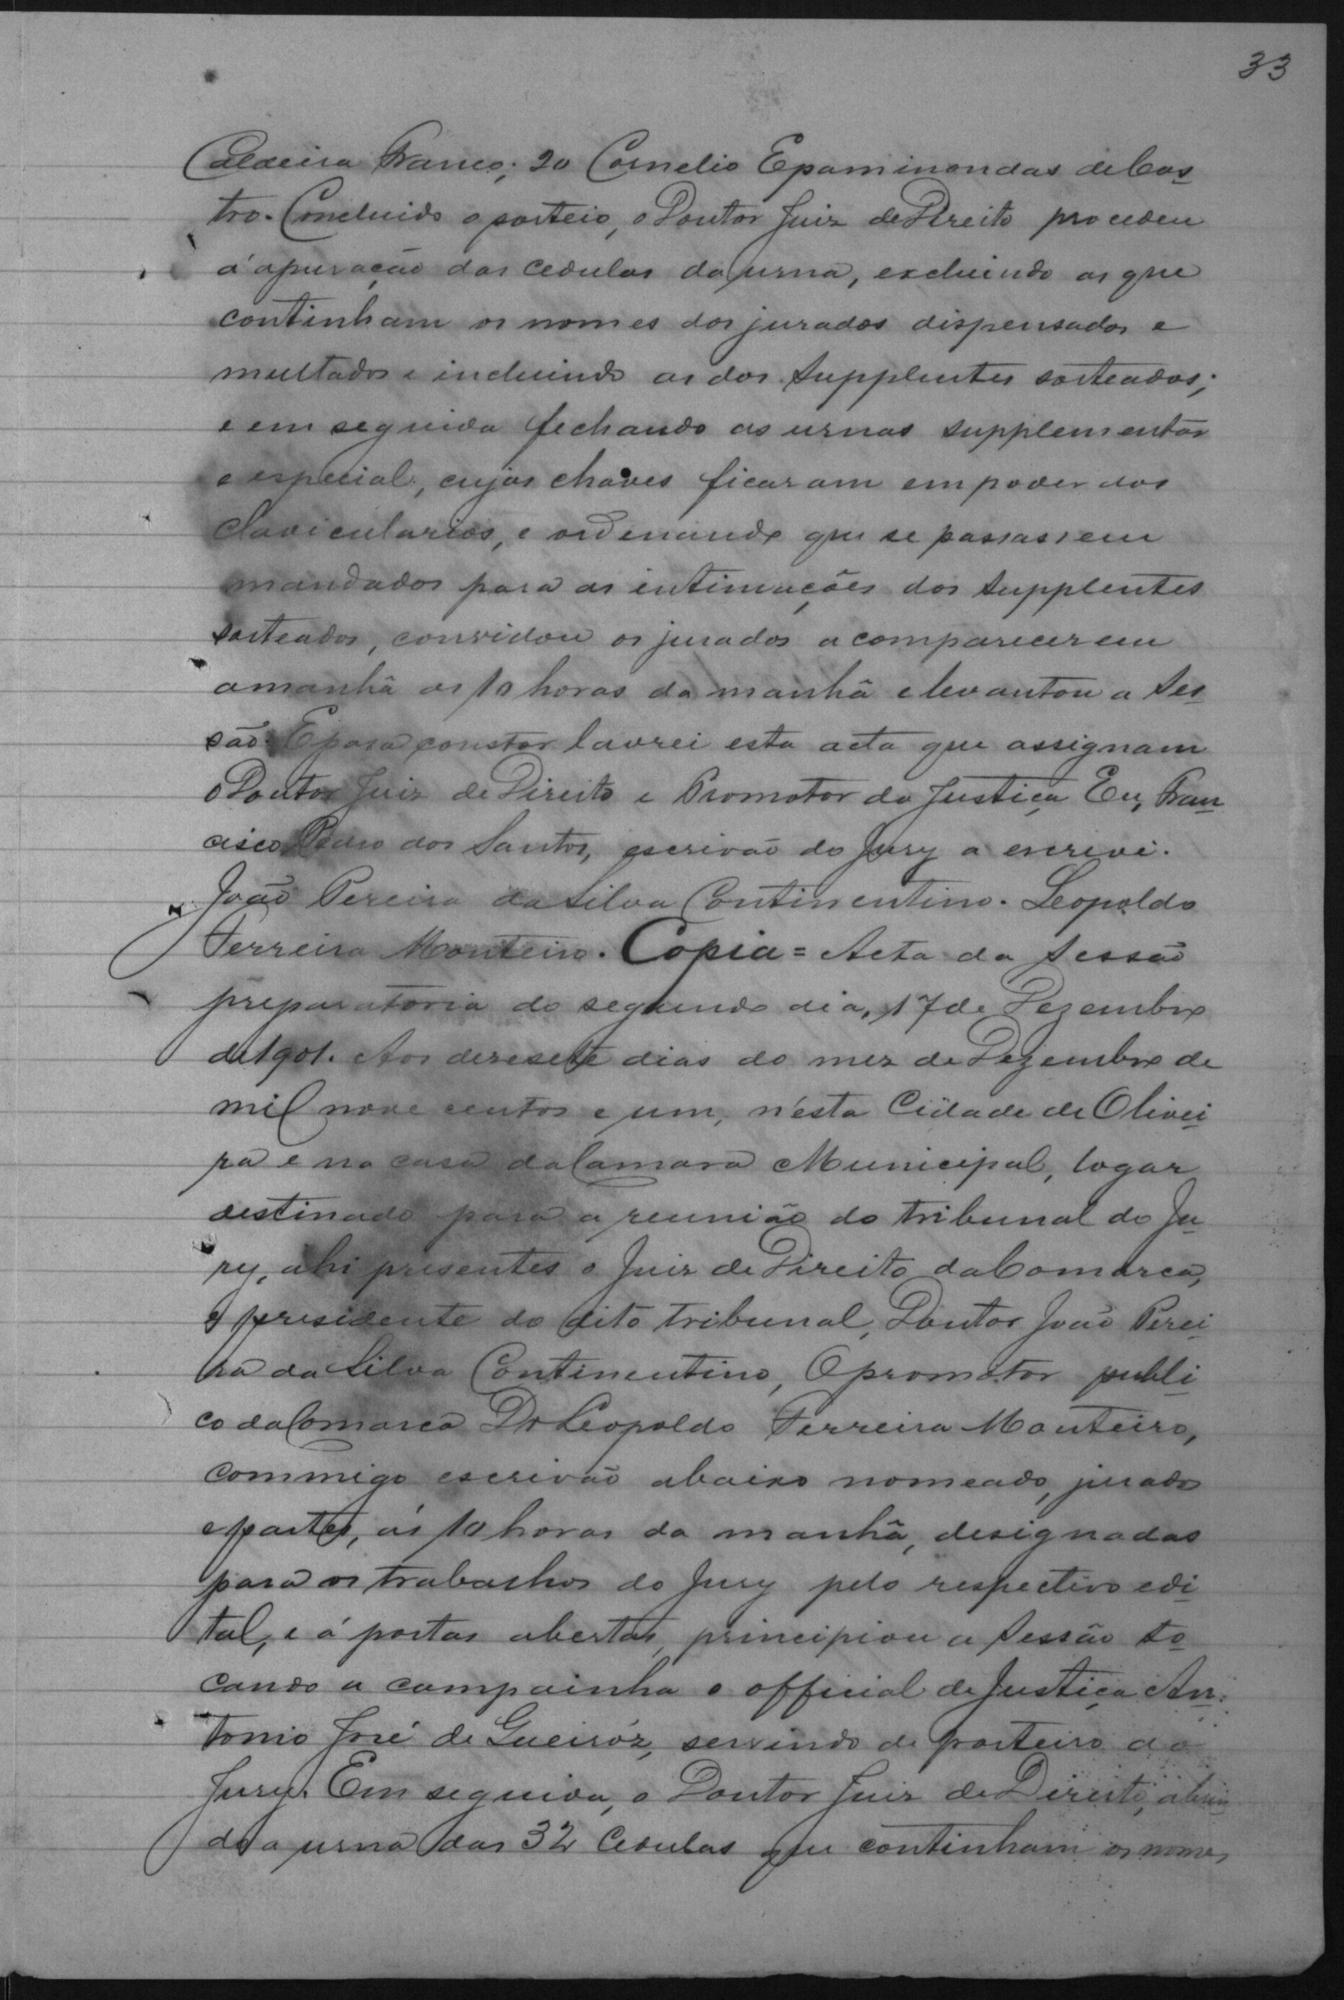 33
Caldeira Franco; 20 Cornelio Epaminondas de Cas-
tro. Concluido o sorteio, o Doutor Juiz de Direito procedeu
á apuração das cedulas da urna, excluindo as que
continham os nomes dos jurados dispensados e
multados e incluindo as dos Supplentes sorteados;
e em seguida fechando as urnas supplementar
e especial, cujas chaves ficaram em poder dos
clavicularios, e ordenando que se passassem
mandados para as intimações dos Supplentes
sorteados, convidou os jurados a comparecerem
amanhã as 10 horas da manhã e levantou a Ses-
são. E para constar lavrei esta acta que assignam
o Doutor Juiz de Direito e Promotor da Justiça Eu, Fran-
cisco Pedro dos Santos, escrivão do Jury a escrivi.
João Pereira da Silva Continentino. Leopoldo
Ferreira Monteiro. Copia = Acta da Sessão
preparatoria do segundo dia, 17 de Dezembro
de 1901. Aos deresete dias do mez de Dezembro de
mil nove centos e um, n'esta Cidade de Olivei-
ra e na casa da Camara Municipal, logar
destinado para a reunião do tribunal do Ju-
ry, ahi presentes o Juiz de Direito da Comarca,
e presidente do dito tribunal, Doutor João Perei-
ra da Silva Continentino, O promotor publi-
co da Comarca Dr Leopoldo Ferreira Monteiro,
commigo escrivão abaixo nomeado, jurados
e partes, ás 10 horas da manhã, designadas
para os trabalhos do Jury pelo respectivo edi-
tal, e á portas abertas, principiou a Sessão to-
cando a campainha o official de Justiça An-
tonio José de Queiróz, servindo de porteiro do
Jury. Em seguida, o Doutor Juiz de Direito, abrin-
do a urna das 32 Cedulas que continham os nomes